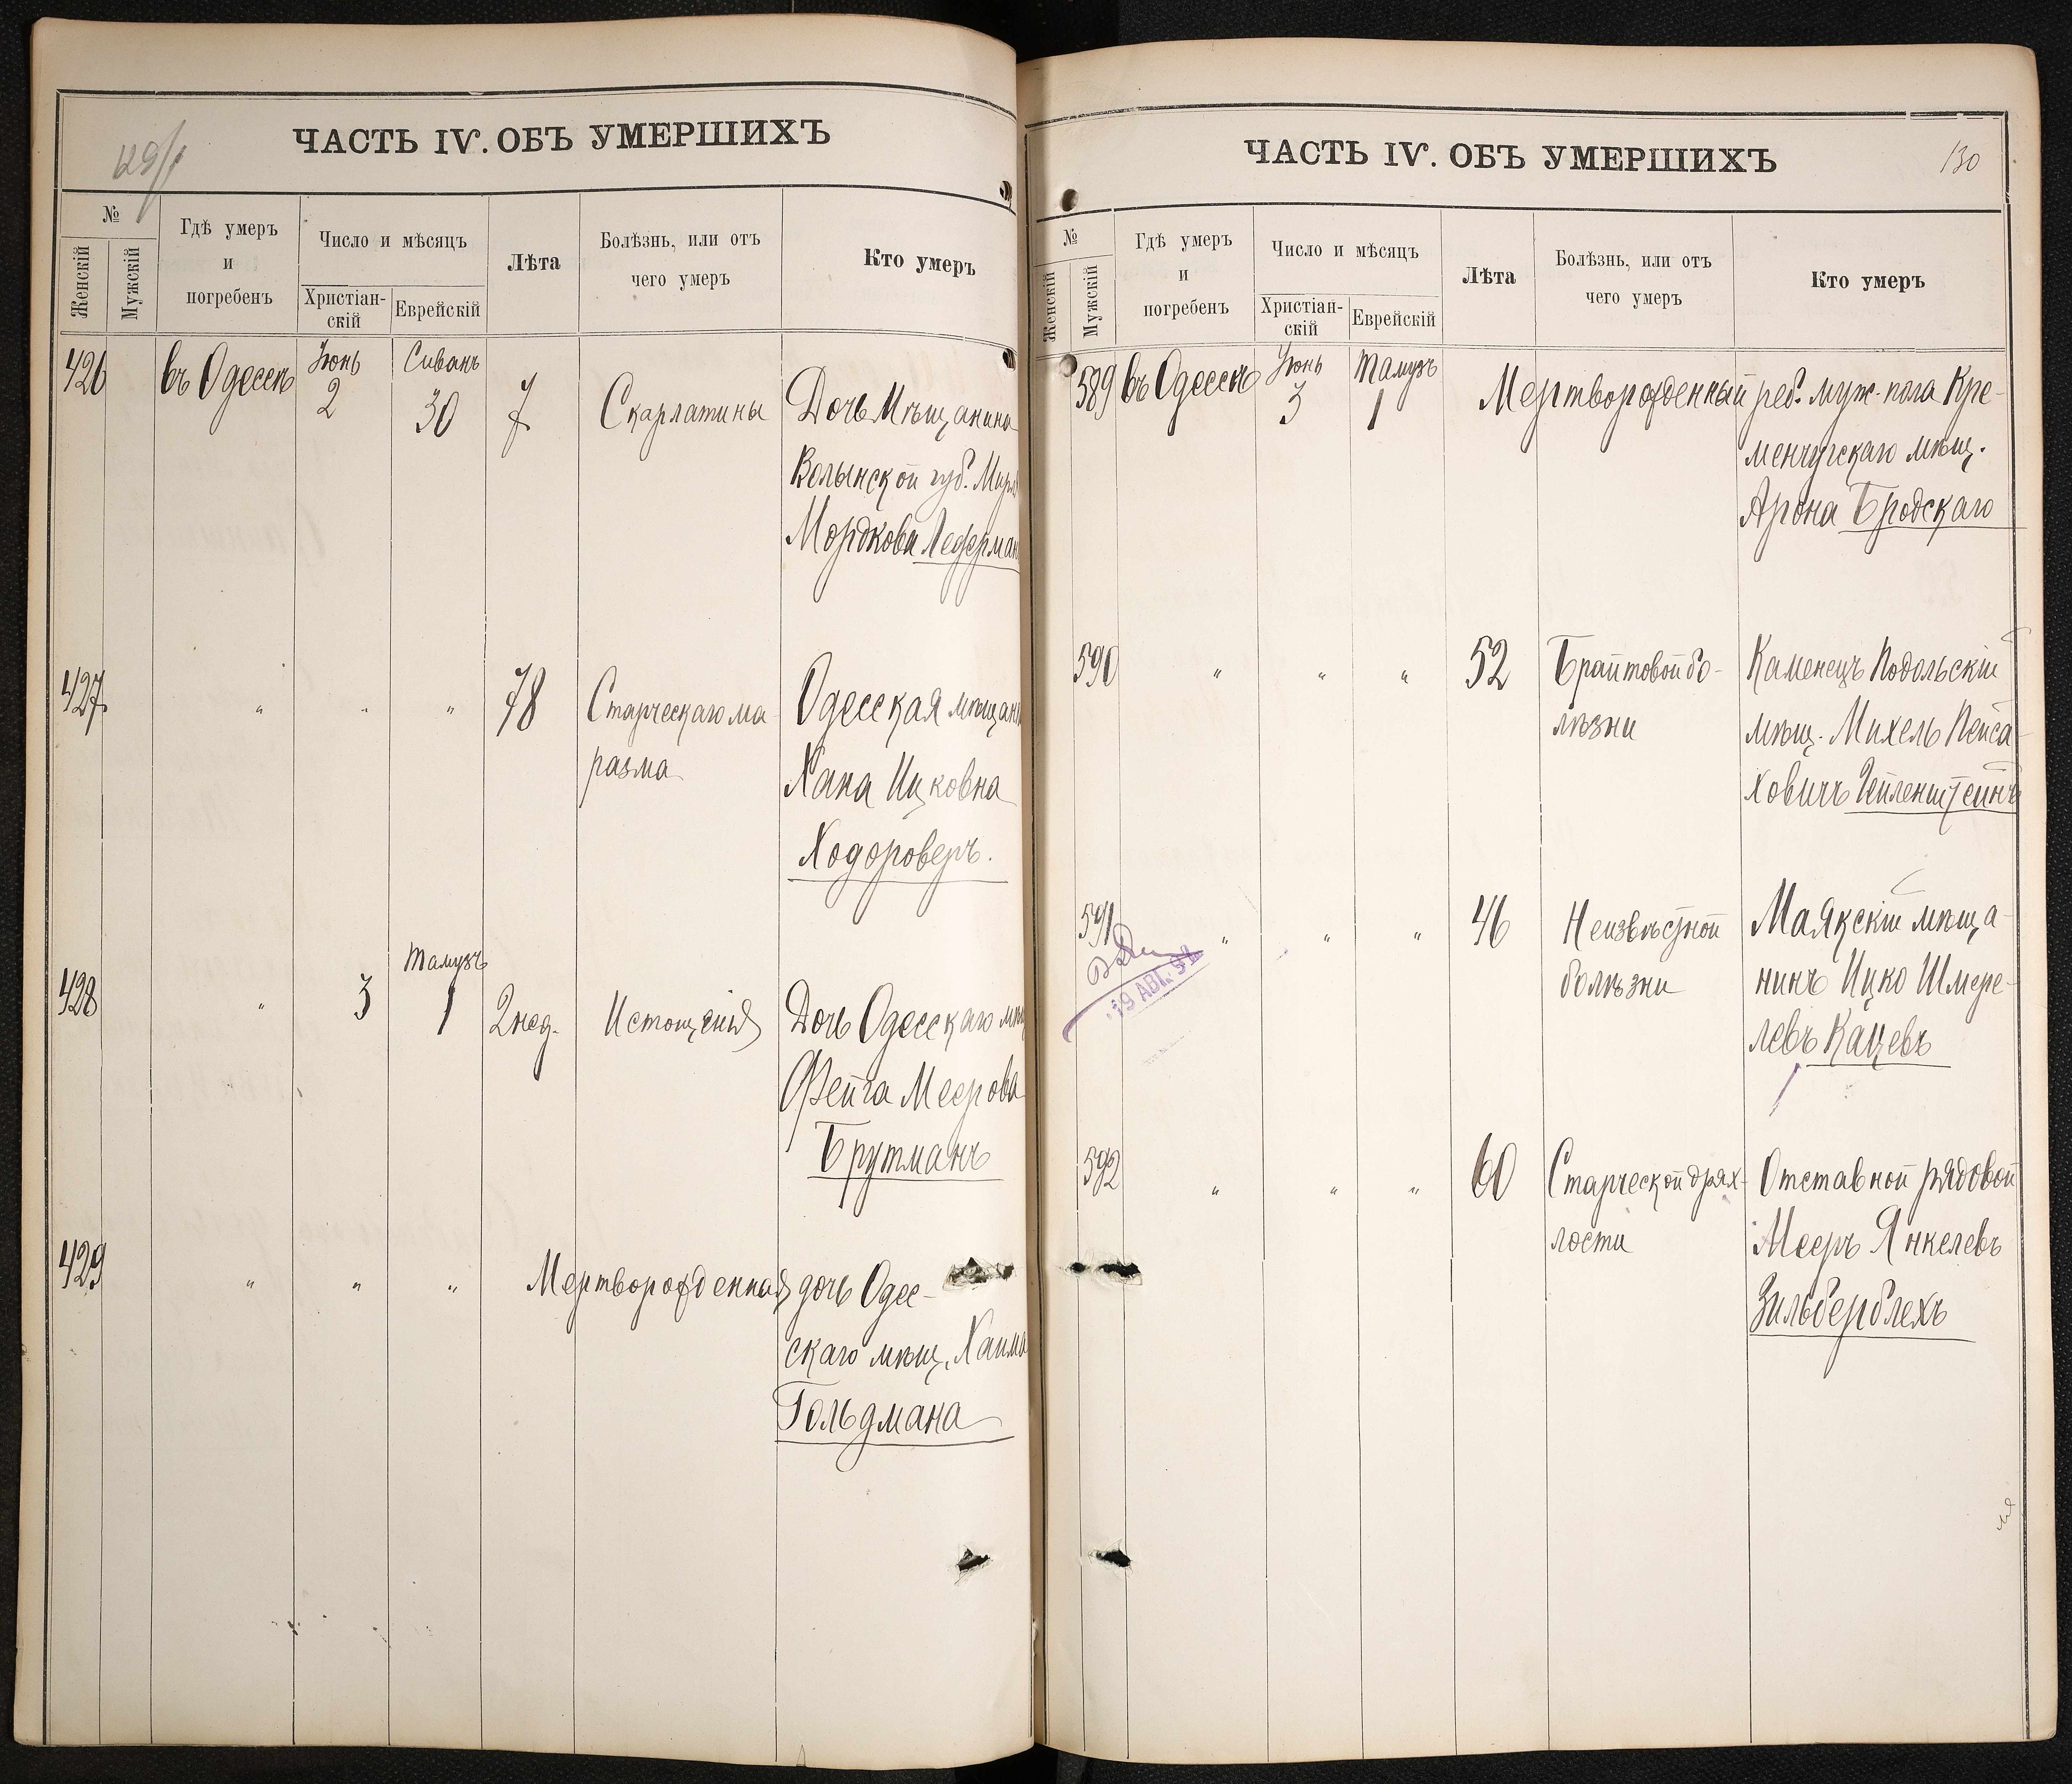 129/1
ЧАСТЬ IV. ОБЪ УМЕРШИХЪ
№
Женскій
Мужскій
Гдѣ умеръ
и
погребенъ
Число и мѣсяцъ
Христіан-
скій
Еврейскій
Лѣта
Болѣзнь, или отъ
чего умеръ
Кто умеръ
426 въ Одессѣ Іюнь 2 Сиванъ 30 7 Скарлатины Дочь Мѣщанина
Волынской губ.
Мордкова Ледерман
427 " " " 78 Старческаго ма-
разма
Одесская мѣщан
Хана Ицковна
Ходороверъ.
428 " 3 Тамузъ 1 2 нед. Истощенія Дочь Одесскаго мѣщ
Фейга Меерова
Брутманъ
429 " " " Мертворожденная дочь Одес-
скаго мѣщ. Хаима
Гольдмана
ЧАСТЬ IV. ОБЪ УМЕРШИХЪ
130
№
Женскій
Мужскій
Гдѣ умеръ
и
погребенъ
Число и мѣсяцъ
Христіан-
скій
Еврейскій
Лѣта
Болѣзнь, или отъ
чего умеръ
Кто умеръ
589 въ Одессѣ Іюнь 3 Тамузъ 1 Мертворожденный реб. муж. пола Кре-
менчугскаго мѣщ.
Арона Бродскаго
590 " " " 52 Брайтовой бо-
лѣзни
Каменецъ Подольскій
мѣщ. Михель Пейса-
ховичъ Гейленштейнъ
591 " " " 46 Неизвѣстной
болѣзни
Маякскій мѣща-
нинъ Ицко Шмере-
левъ Кацевъ
19 АВГ. 91
592 " " " 60 Старческой дрях-
лости
Отставной рядовой
Мееръ Янкелевъ
Зильберблехъ